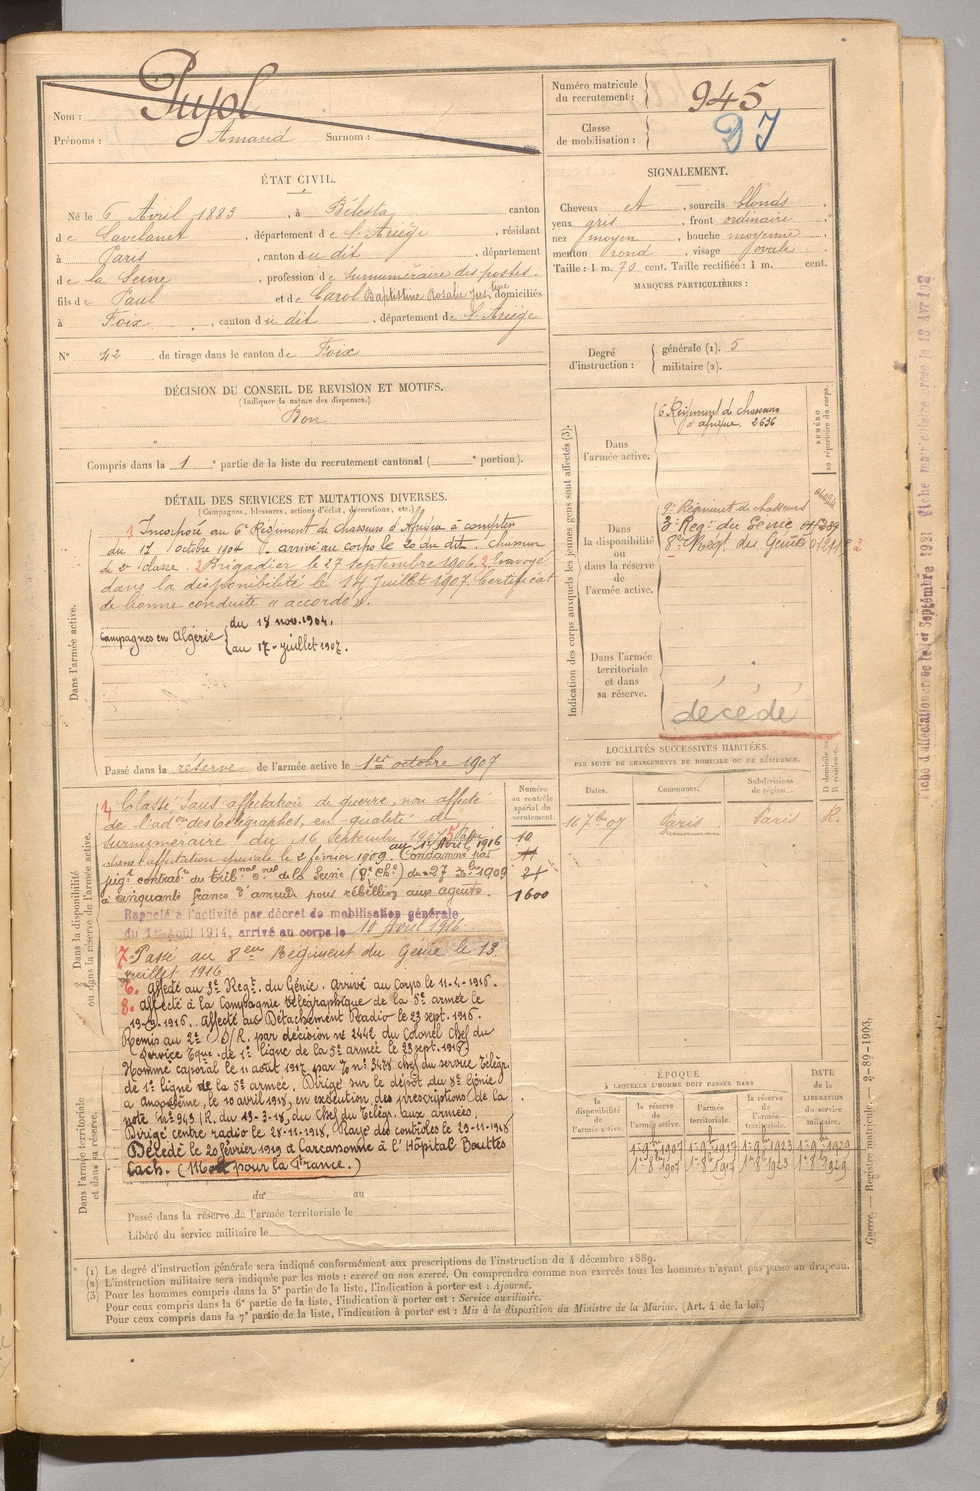 Nom : Pujol
Prénoms : Amand Surnom :
Numéro matricule du recrutement : 945
Classe de mobilisation : DJ
ÉTAT CIVIL.
Né le 6 Avril 1883, à Bélesta canton
de Lavelanet, département de l'Ariège, résidant
à Paris, canton du dit, département
de la Seine, profession de Surnuméraire des postes.
fils de Paul et de Carol Baptistine Rosalie Justine, domiciliés
à Foix, canton du dit, département de l'Ariège
N° 42 de tirage dans le canton de Foix
DÉCISION DU CONSEIL DE REVISION ET MOTIFS.
(Indiquer la nature des dispenses.)
Bon
Compris dans la 1e partie de la liste du recrutement cantonal ( e portion).
SIGNALEMENT.
Cheveux et, sourcils blonds
yeux gris, front ordinaire
nez moyen, bouche moyenne
menton rond, visage ovale
Taille : 1 m. 70 cent. Taille rectifiée : 1 m. cent.
MARQUES PARTICULIÈRES :
Degré d'instruction : générale (1). 5
militaire (2).
Indication des corps auxquels les jeunes gens sont affectés (3).
NUMÉRO au répertoire du corps.
Dans l'armée active.
6 Régiment de chasseurs
d'afrique. 2636
Dans la disponibilité ou dans la réserve de l'armée active.
Régiment de chasseurs
3e Reg.t du Génie
8e Reg.t du Génie
Dans l'armée territoriale et dans sa réserve.
décédé
DÉTAIL DES SERVICES ET MUTATIONS DIVERSES.
(Campagnes, blessures, actions d'éclat, décorations, etc.)
Dans l'armée active.
1 Incorporé au 6e Régiment de Chasseurs d'Afrique à compter
du 17 octobre 1904 arrivé au corps le 20 du dit. Chasseur
de 2e classe. 2 Brigadier le 27 septembre 1906. 3 Envoyé
dans la disponibilité le 14 Juillet 1907. Certificat
de bonne conduite "accordé".
Campagnes en Algérie { du 18 nov. 1904.
au 17 juillet 1907.
Passé dans la réserve de l'armée active le 1er octobre 1907
Dans la disponibilité ou dans la réserve de l'armée active.
4 Classé sans affectation de guerre, non affecté
de l'ad.on des Télégraphes, en qualité de
surnuméraire du 16 septembre 1907 5 Passé au 1er Avril 1916
dans l'affectation spéciale le 2 février 1909. Condamné par
jug.t contrad.re du Trib.nal c.nel de la Seine (8e Ch.e) du 27 1909
à cinquante francs d'amende pour rébellion aux agents.
Rappelé à l'activité par décret de mobilisation générale
du 1er Août 1914, arrivé au corps le 10 Avril 1916.
7. Passé au 8eme Régiment du Génie le 13
juillet 1916
6. Affecté au 3e Reg.t du Génie. Arrivé au Corps le 11-4-1916.
8. Affecté à la Compagnie télégraphique de la 5e armée le
19-9-1916. Affecté au Détachement Radio le 23 sept. 1916.
Remis au 2e D/R. par décision n° 2442 du Colonel Chef du
Service Tque de 1e ligne de la 5e armée le 23 sept. 1916.
Nommé caporal le 11 août 1917 par n° 3478 chef du service Télégr.
de 1e ligne de la 5e armée. Dirigé sur le dépôt du 8e Génie
à Angoulême, le 10 avril 1918, en exécution des prescriptions de la
note n° 943/R. du 19-3-18, du Chef du Télégr. aux armées.
Dirigé centre radio le 28-11-1918. Rayé des contrôles le 29-11-1918
Décédé le 20 février 1919 à Carcassonne à l'Hôpital Bouttes
Gach. (Mort pour la France.)
Dans l'armée territoriale et dans sa réserve.
du au
Passé dans la réserve de l'armée territoriale le
Libéré du service militaire le
Numéro au contrôle spécial du recrutement.
10
11
24
1600
LOCALITÉS SUCCESSIVES HABITÉES.
PAR SUITE DE CHANGEMENTS DE DOMICILE OU DE RÉSIDENCE.
Dates. Communes. Subdivisions de région. D domicile ou R résidence.
16 7bre 07 Paris Paris R.
ÉPOQUE
À LAQUELLE L'HOMME DOIT PASSER DANS
la disponibilité de l'armée active.
la réserve de l'armée active.
l'armée territoriale.
la réserve de l'armée territoriale.
DATE de la LIBÉRATION du service militaire.
1er 8bre 1907 1er 8bre 1917 1er 8bre 1923 1er 8bre 1929
(1) Le degré d'instruction générale sera indiqué conformément aux prescriptions de l'instruction du 4 décembre 1889.
(2) L'instruction militaire sera indiquée par les mots : exercé ou non exercé. On comprendra comme non exercés tous les hommes n'ayant pas passé au drapeau.
(3) Pour les hommes compris dans la 5e partie de la liste, l'indication à porter est : Ajourné.
Pour ceux compris dans la 6e partie de la liste, l'indication à porter est : Service auxiliaire.
Pour ceux compris dans la 7e partie de la liste, l'indication à porter est : Mis à la disposition du Ministre de la Marine. (Art. 4 de la loi.)
Guerre. — Registre matricule. — 2-89-1903.